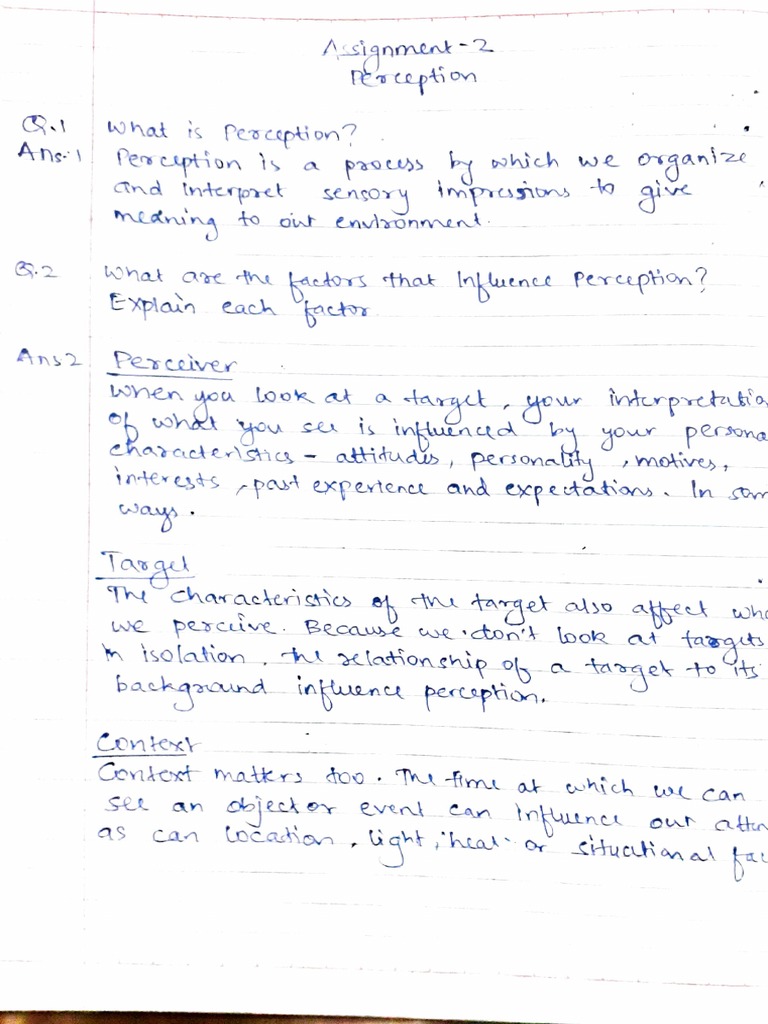 Assignment-2
Perception
Q.1 What is Perception?
Ans.1 Perception is a process by which we organize
and interpret sensory impressions to give
meaning to our environment.
Q.2 What are the factors that Influence Perception?
Explain each factor
Ans2 Perceiver
When you look at a target, your interpretatio
of what you see is influenced by your persona
characteristics - attitudes, personality, motives,
interests, past experience and expectations. In som
ways.
Target
The characteristics of the target also affect wha
we perceive. Because we don't look at targets
in isolation, the relationship of a target to its
background influence perception.
Context
Context matters too. The time at which we can
see an object or event can influence our atten
as can location, light, heat or situational fac